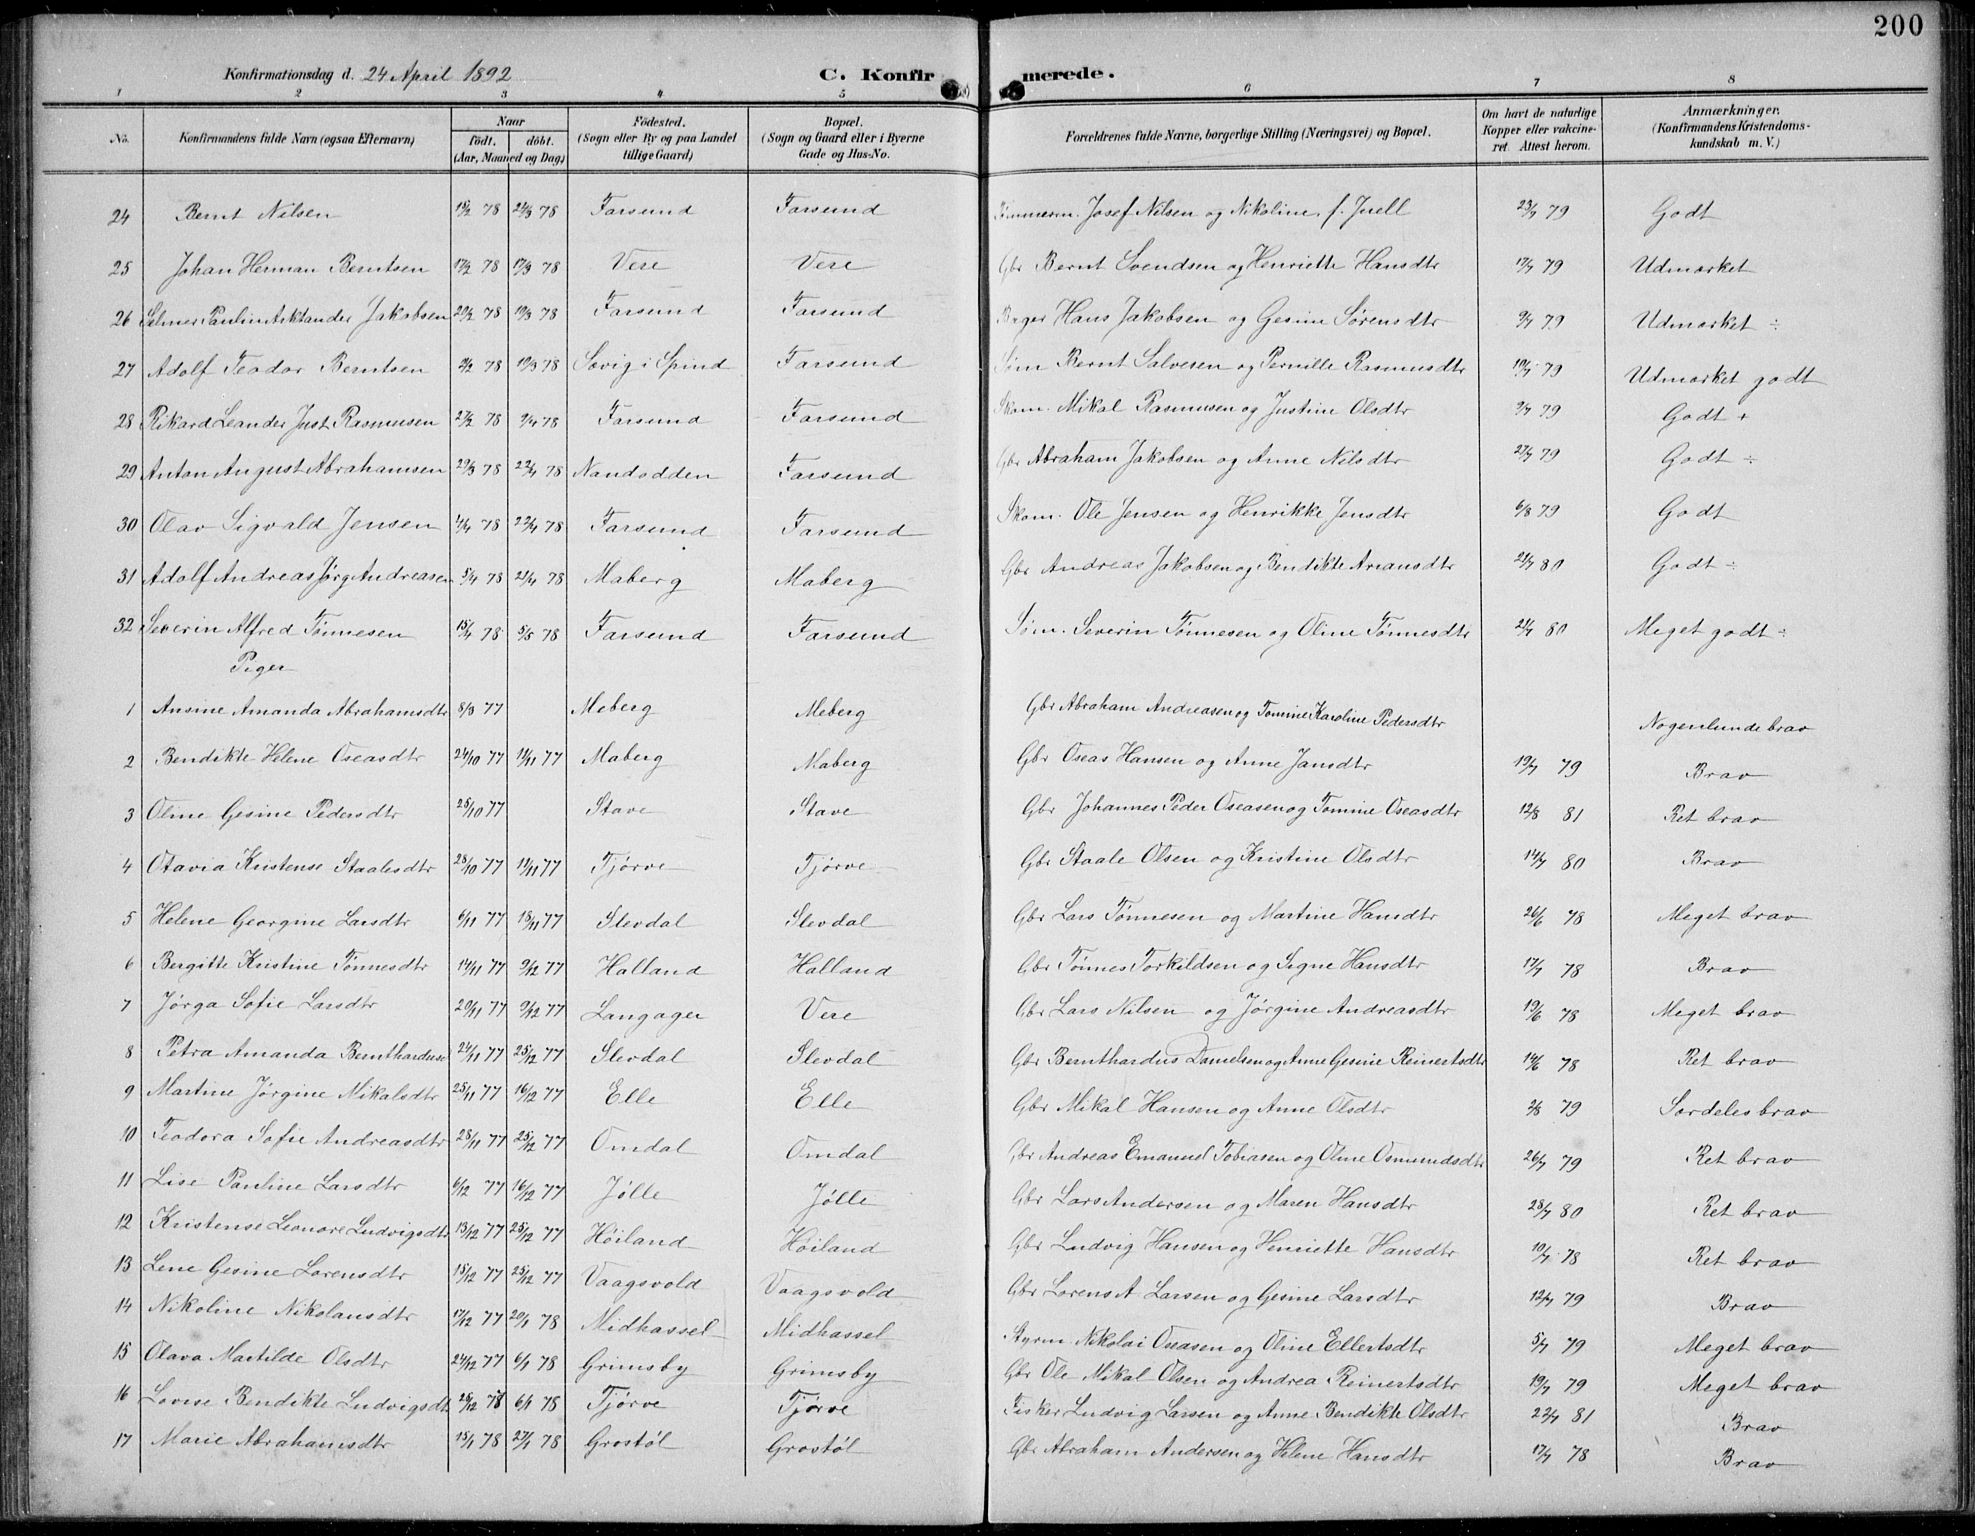 200
Konfirmationsdag d. 24 April 1892 C. Konfirmerede.
1 2 3 4 5 6 7 8
No. Konfirmandens fulde Navn (ogsaa Efternavn) Naar født. døbt. (Aar, Maaned og Dag) Fødested. (Sogn eller By og paa Landet tillige Gaard) Bopæl. (Sogn og Gaard eller i Byerne Gade og Hus-No. Forældrenes fulde Navne, borgerlige Stilling (Næringsvei) og Bopæl. Om havt de naturlige Kopper eller vakcineret. Attest herom. Anmærkninger. (Konfirmandens Kristendomskundskab m. V.)
24 Bernt Nilsen 15/2 78 24/3 78 Farsund Farsund Tømmerm. Josef Nilsen og Nikoline f. Juell 23/7 79 Godt
25 Johan Herman Berntsen 17/2 78 17/3 78 Vere Vere Gbr Bernt Svendsen og Henriette Hansdtr 17/7 79 Udmærket
26 Selmer Paulin Arktander Jakobsen 20/2 78 10/3 78 Farsund Farsund Bager Hans Jakobsen og Gesine Sørensdtr 9/7 79 Udmærket ÷
27 Adolf Teodor Berntsen 2/2 78 10/3 78 Sovig i Spind Farsund Søm Bernt Salvesen og Pernille Rasmusdtr 10/7 79 Udmærket godt
28 Rikard Leander Just Rasmusen 27/2 78 7/4 78 Farsund Farsund Skom. Mikal Rasmusen og Justine Olsdtr 9/7 79 Godt +
29 Anton August Abrahamsen 29/3 78 22/4 78 Nandodden Farsund Gbr Abraham Jakobsen og Anne Nilsdtr 27/7 79 Godt ÷
30 Olav Sigvald Jensen 4/4 78 22/4 78 Farsund Farsund Skom. Ole Jensen og Henrikke Jensdtr 6/8 79 Godt
31 Adolf Andreas Jørg Andreasen 5/4 78 21/4 78 Maberg Maberg Gbr Andreas Jakobsen og Bendikte Ariansdtr 21/7 80 Godt ÷
32 Severin Alfred Tønnesen 15/4 78 5/5 78 Farsund Farsund Søm. Severin Tønnesen og Oline Tønnesdtr 21/7 80 Meget godt ÷
Piger
1 Ansine Amanda Abrahamsdtr 8/3 77 Meberg Meberg Gbr Abraham Andreasen og Tomine Karoline Pedersdtr Nogenlunde brav
2 Bendikte Helene Oseasdtr 24/10 77 11/11 77 Maberg Maberg Gbr Oseas Hansen og Anne Jansdtr 19/7 79 Brav
3 Oline Gesine Pedersdtr 25/10 77 Stave Stave Gbr Johannes Peder Oseasen og Tomine Oseasdtr 12/8 81 Ret brav
4 Otavia Kristense Staalesdtr 28/10 77 11/11 77 Tjørve Tjørve Gbr Staale Olsen og Kristine Olsdtr 14/7 80 Brav
5 Helene Georgine Larsdtr 6/11 77 18/11 77 Slevdal Slevdal Gbr Lars Tønnesen og Martine Hansdtr 26/6 78 Meget brav
6 Bergitte Kristine Tønnesdtr 14/11 77 9/12 77 Halland Halland Gbr Tønnes Torkildsen og Signe Hansdtr 17/7 78 Brav
7 Jørga Sofie Larsdtr 20/11 77 9/12 77 Langager Vere Gbr Lars Nilsen og Jørgine Andreasdtr 19/6 78 Meget brav
8 Petra Amanda Bernthardusd 24/11 77 25/12 77 Slevdal Slevdal Gbr Bernthardus Danielsen og Anne Gesine Reinertsdtr 14/6 78 Ret brav
9 Martine Jørgine Mikalsdtr 25/11 77 16/12 77 Elle Elle Gbr Mikal Hansen og Anne Olsdtr 2/8 79 Særdeles brav
10 Teodora Sofie Andreasdtr 28/11 77 25/12 77 Omdal Omdal Gbr Andreas Emanuel Tobiasen og Oline Osmundsdtr 26/7 79 Ret brav
11 Lise Pauline Larsdtr 6/12 77 16/12 77 Jølle Jølle Gbr Lars Andersen og Maren Hansdtr 28/7 80 Ret brav
12 Kristense Leonore Ludvigsdtr 13/12 77 25/12 77 Høiland Høiland Gbr Ludvig Hansen og Henriette Hansdtr 10/7 78 Ret brav
13 Lene Gesine Lorensdtr 15/12 77 25/12 77 Vaagsvold Vaagsvold Gbr Lorens A. Larsen og Gesine Larsdtr 12/7 79 Brav
14 Nikoline Nikolausdtr 17/12 77 20/1 78 Midhassel Midhassel Styrm. Nikolai Oseasen og Oline Ellertsdtr 5/7 79 Meget brav
15 Olava Matilde Olsdtr 24/12 77 6/1 78 Grimsby Grimsby Gbr Ole Mikal Olsen og Andrea Reinertsdtr 19/7 79 Meget brav
16 Lovise Bendikte Ludvigsdt 25/12 77 6/1 78 Tjørve Tjørve Fisker Ludvig Larsen og Anne Bendikte Olsdtr 22/7 81 Brav
17 Marie Abrahamsdtr 15/1 78 27/1 78 Grostøl Grostøl Gbr Abraham Andersen og Helene Hansdtr 17/7 78 Brav